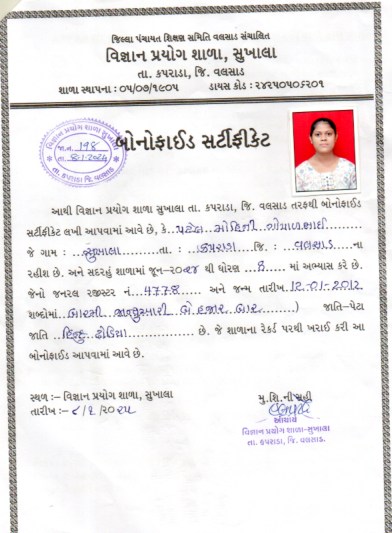 જિલ્લા પંચાયત શિક્ષણ સમિતિ વલસાડ સંચાલિત
વિજ્ઞાન પ્રયોગ શાળા, સુખાલા
તા. કપરાડા, જિ. વલસાડ
શાળા સ્થાપના : ૦૫/૦૭/૧૯૦૫ ડાયસ કોડ : ૨૪૨૫૦૫૦૬૨૦૧
વિજ્ઞાન પ્રયોગ શાળા સુખાલા
જા.નં. ૧98
તા. 8-1-2024
તા. કપરાડા જિ. વલસાડ
બોનોફાઈડ સર્ટીફીકેટ
આથી વિજ્ઞાન પ્રયોગ શાળા સુખાલા તા. કપરાડા, જિ. વલસાડ તરફથી બોનોફાઈડ
સર્ટીફીકેટ લખી આપવામાં આવે છે, કે. પટેલ મોહિની ગોપાળભાઈ
જે ગામ : સુખાલા તા. : કપરાડા જિ. : વલસાડ ના
રહીશ છે. અને સદરહું શાળામાં જૂન-૨૦૨૪ થી ધોરણ 8 માં અભ્યાસ કરે છે.
જેનો જનરલ રજીસ્ટર નં. 4778 અને જન્મ તારીખ 12-01-2012
શબ્દોમાં બારમી જાન્યુઆરી બે હજાર બાર ) જાતિ-પેટા
જાતિ હિન્દુ ધોડિયા છે. જે શાળાના રેકર્ડ પરથી ખરાઈ કરી આ
બોનોફાઈડ આપવામાં આવે છે.
સ્થળ :- વિજ્ઞાન પ્રયોગ શાળા, સુખાલા
તારીખ :- ૮/૧/૨૦૨૫
મુ.શિ.ની સહી
આચાર્ય
વિજ્ઞાન પ્રયોગ શાળા-સુખાલા
તા. કપરાડા, જિ. વલસાડ.